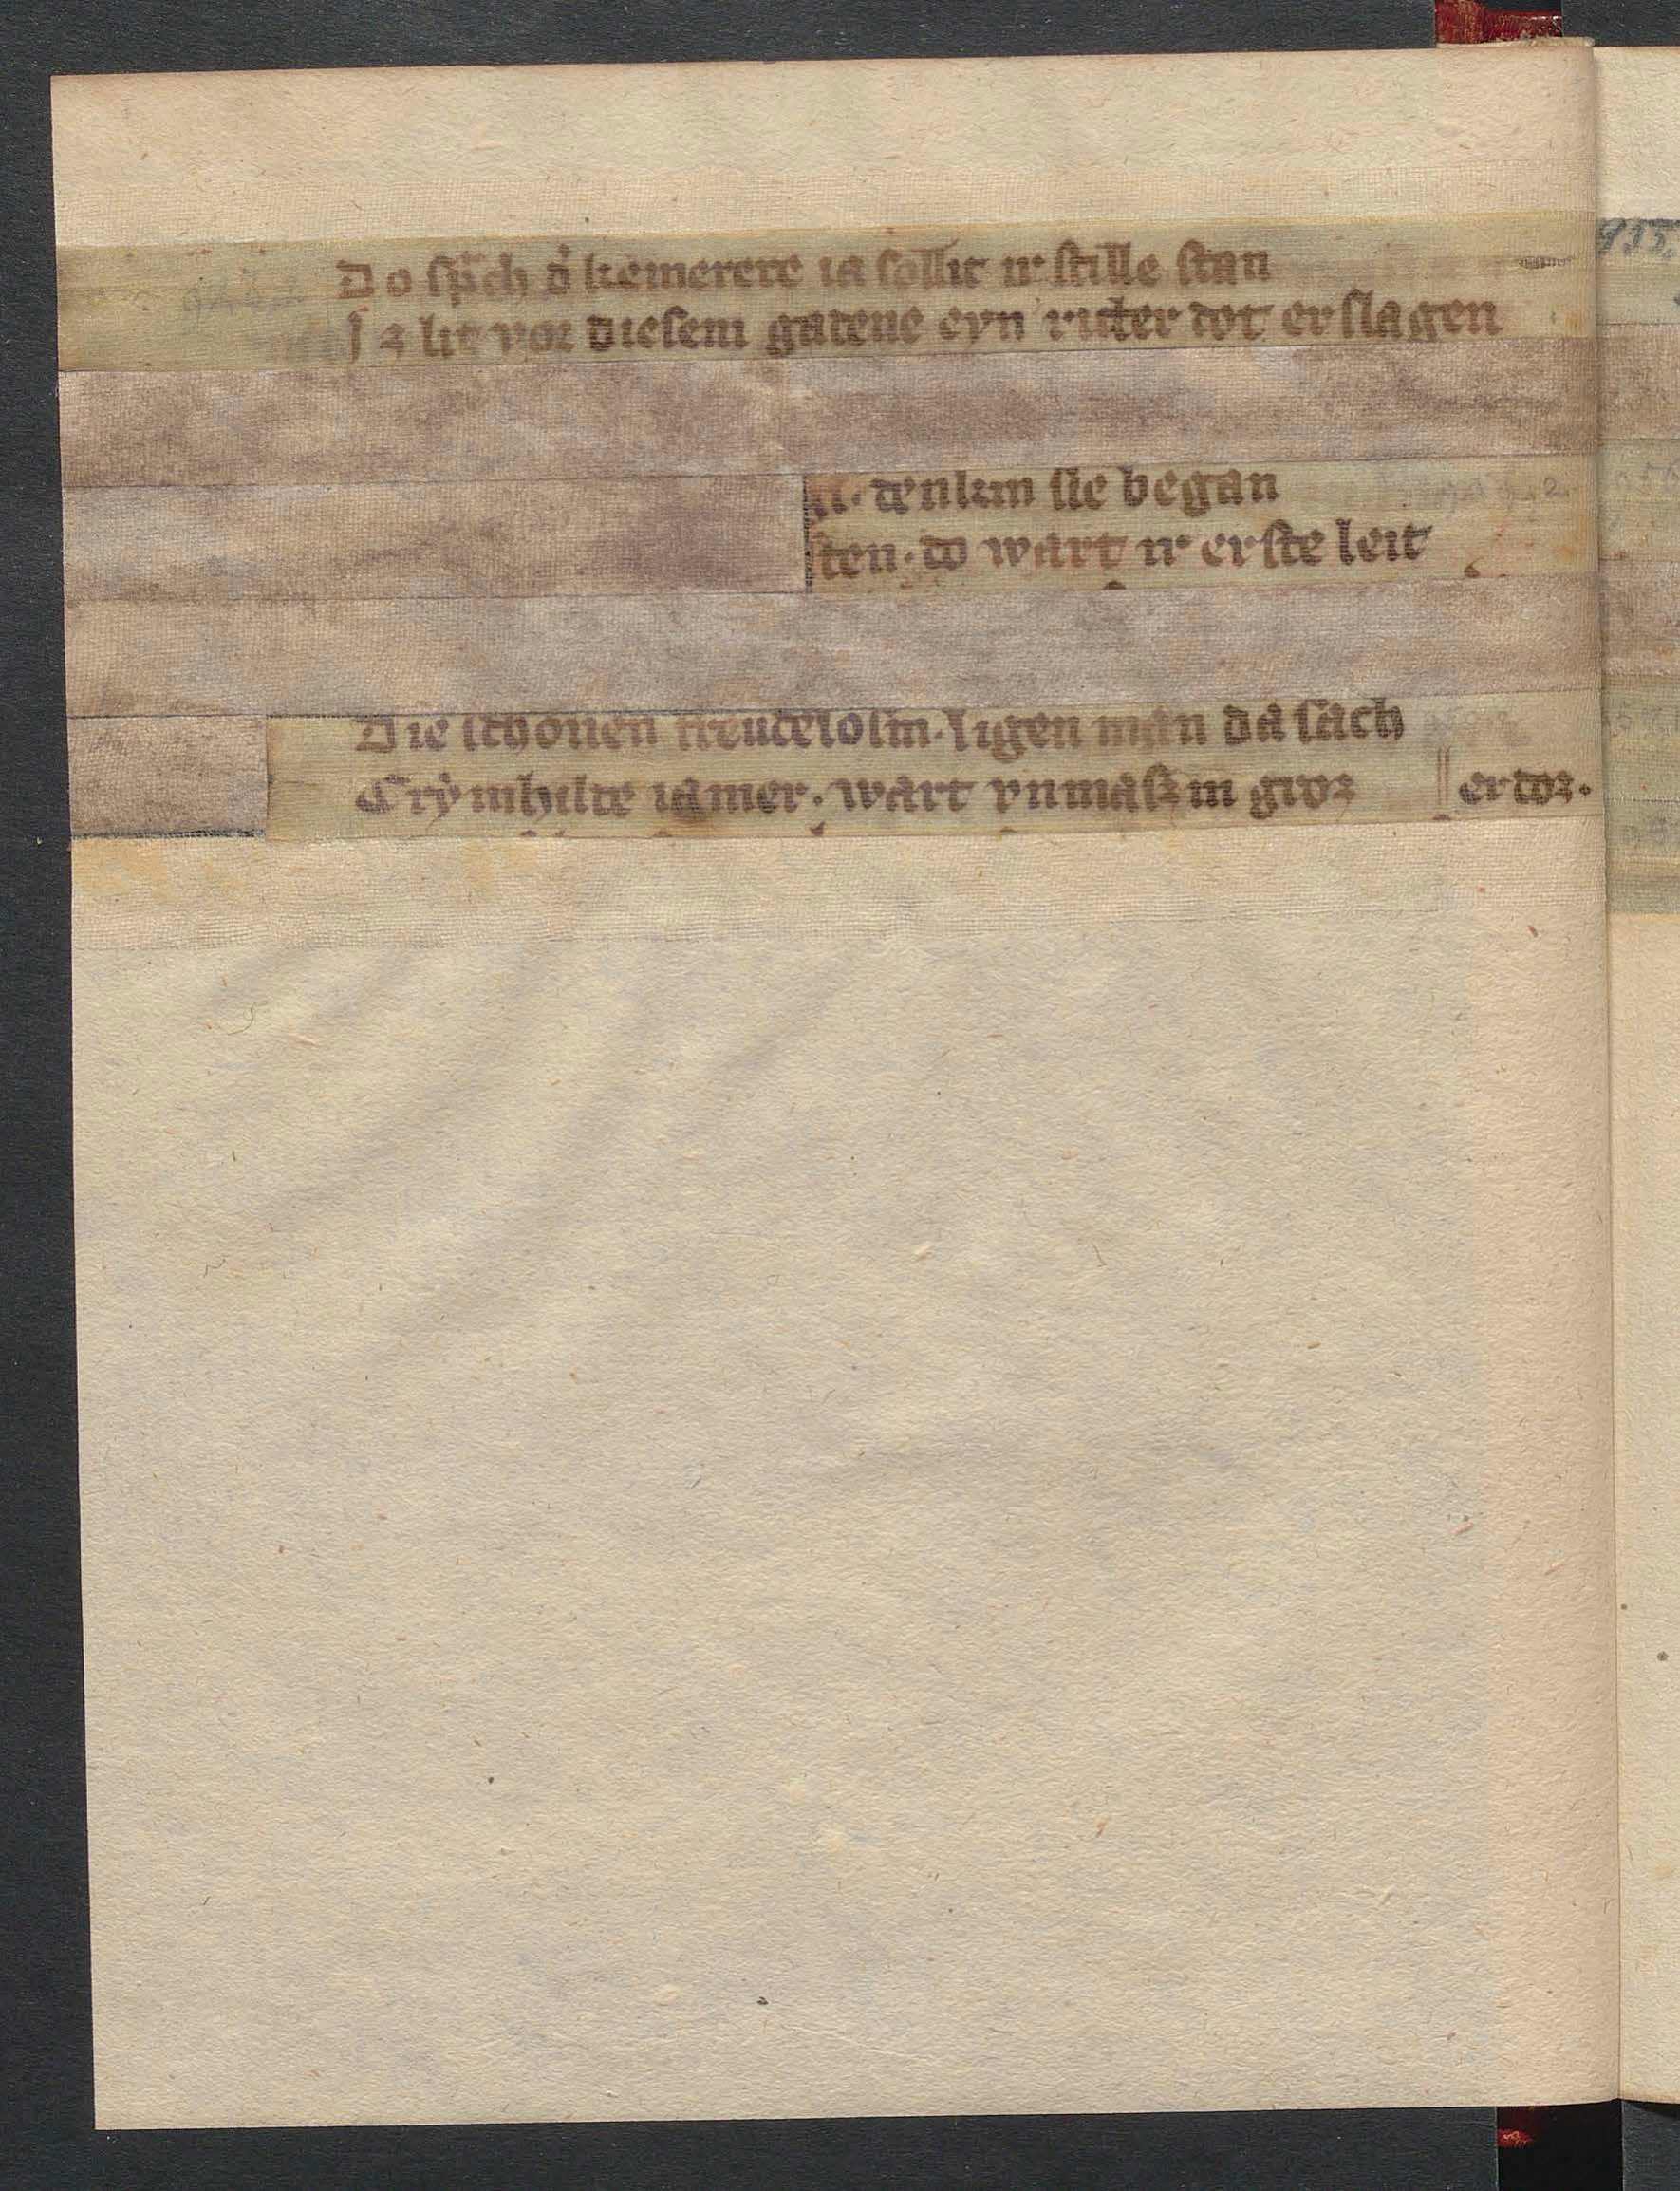 Do sp̃ch d̾ kemerere ia sollit ir stille stan
Iz lit vor diesem gadeue eyn ritter dot erslagen
denkin sie began
sten · do wart ir erste leit
Die schonen freudelosin · ligen man da sach
Crẏmhilde iamer · wart vnmaszin groz ‖ er doz ·